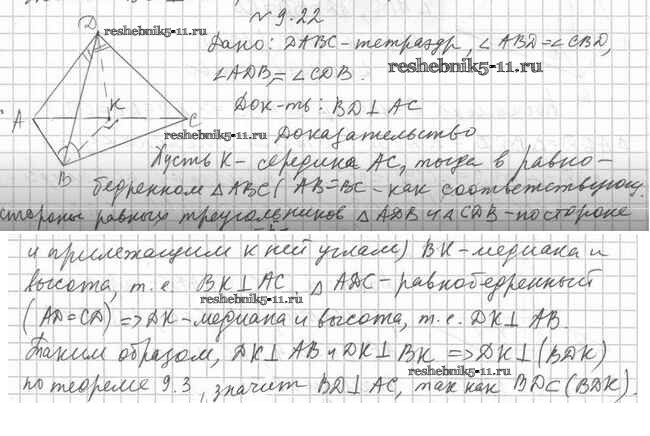 №9.22
D
reshebnik5-11.ru
Дано: DABC - тетраэдр, ∠ABD=∠CBD,
∠ADB=∠CDB.
reshebnik5-11.ru
Док-ть: BD⊥AC
A K C
reshebnik5-11.ru
Доказательство
B
Пусть K - середина AC, тогда в равно-
бедренном △ABC (AB=BC - как соответствующ.
стороны равных треугольников △ADB и △CDB - по стороне
и прилежащим к ней углам) BK - медиана и
высота, т.е. BK⊥AC. △ADC - равнобедренный
reshebnik5-11.ru
(AD=CD) => DK - медиана и высота, т.е. DK⊥AB.
Таким образом, DK⊥AB и DK⊥BK => DK⊥(BDK)
reshebnik5-11.ru
по теореме 9.3, значит BD⊥AC, так как BD⊂(BDK).